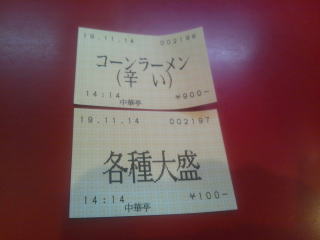 19.11.14 002196
コーンラーメン
(辛い)
14:14 ¥900-
中華亭
19.11.14 002197
各種大盛
14:14 ¥100-
中華亭